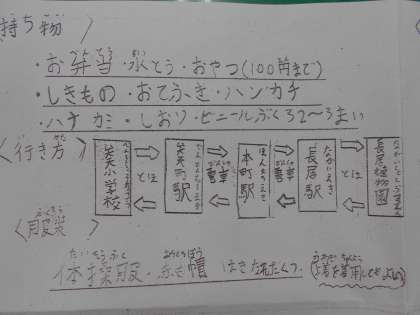 持ち物
・お弁当・水とう・おやつ(100円まで)
・しきもの・おてふき・ハンカチ
・ハナカミ・しおり・ビニールぶくろ2〜3まい
〈行き方〉
小学校 とほ 駅 電車 本町駅 電車 長居駅 とほ 長居植物園
ほんまちえき
ながいえき
〈服装〉
ふくそう
たいそうふく
体操服・赤白帽 はきなれたくつ